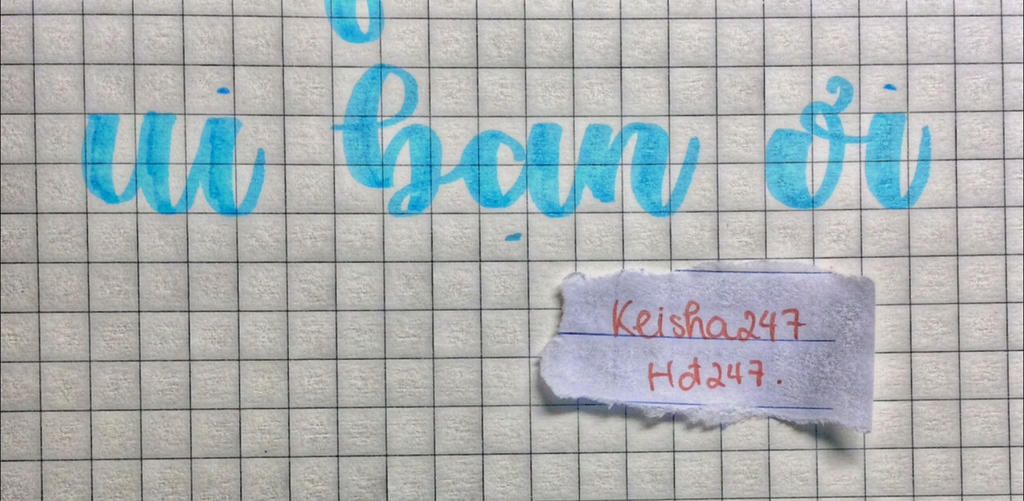 ui bạn ơi
Keisha247
Hot247.